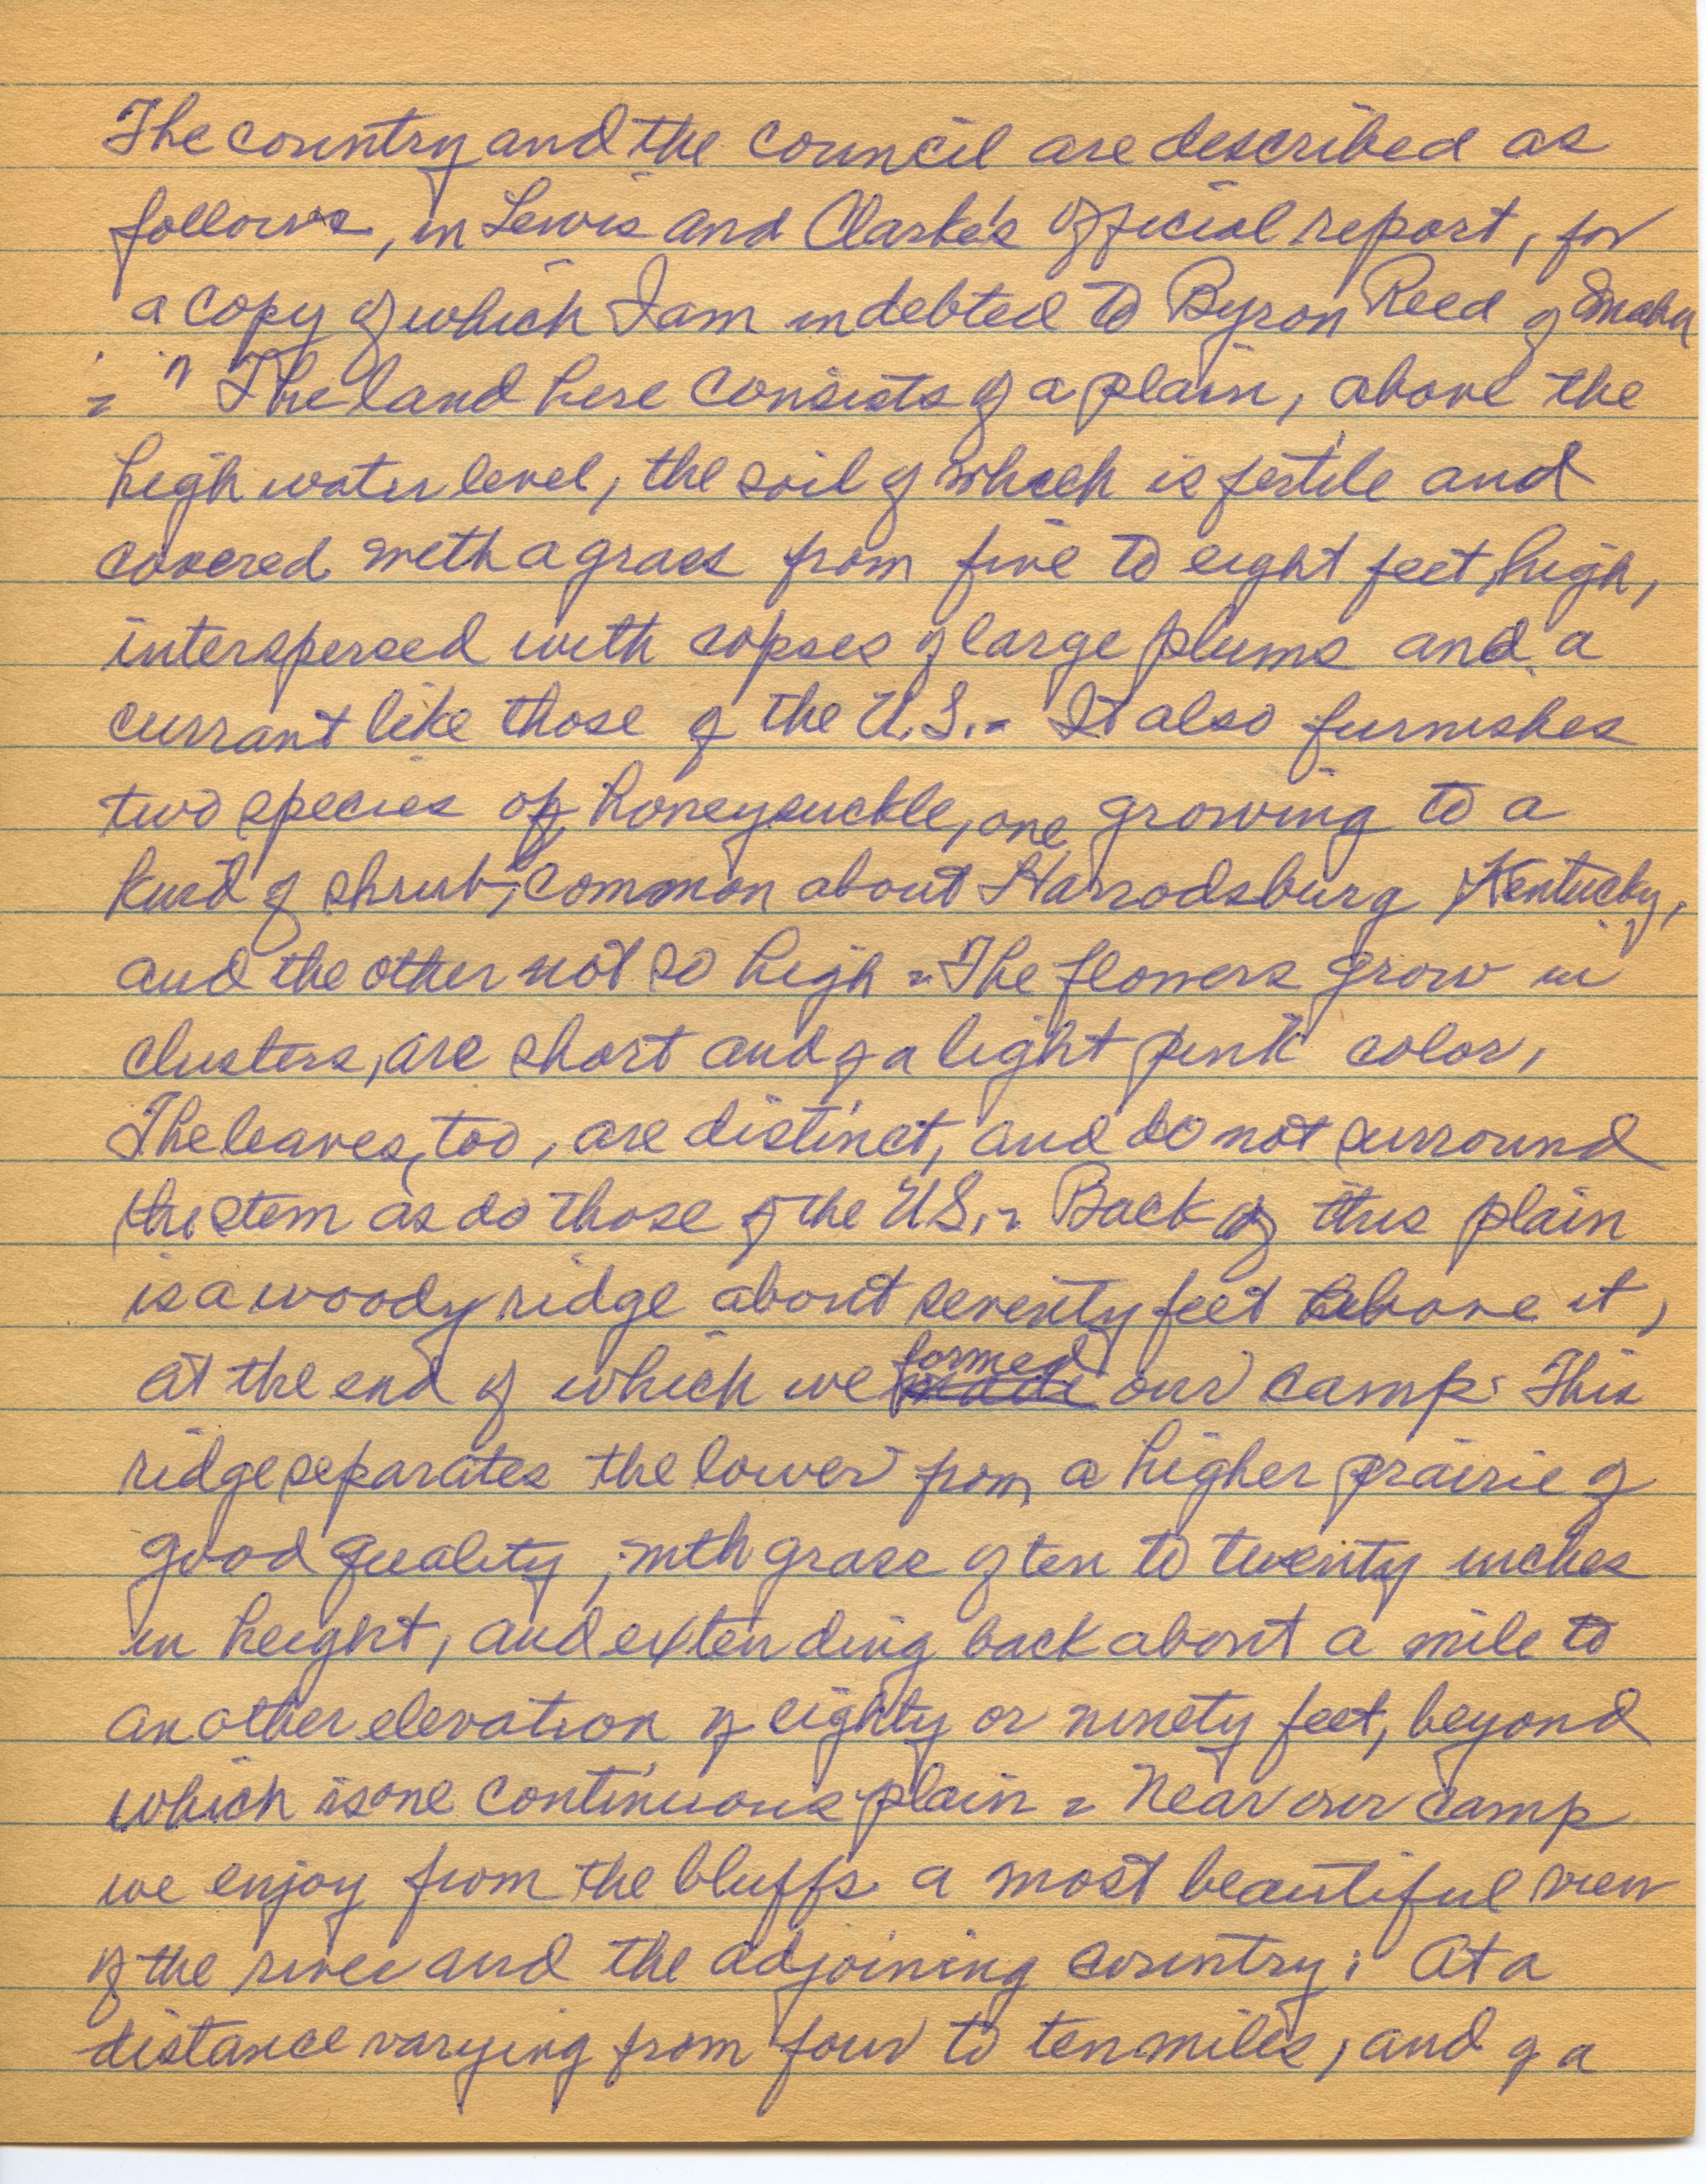 The country and the council are described as
follows, in Lewis and Clarke's official report, for
a copy of which I am indebted to Byron Reed of Omaha
:- "The land here consists of a plain, above the
high water level, the soil of which is fertile and
covered with a grass from five to eight feet high,
interspersed with copses of large plums and a
currant like those of the U.S.- It also furnishes
two species of honeysuckle, one growing to a
kind of shrub, common about Harrodsburg Kentucky,
and the other not so high - The flowers grow in
clusters, are short and of a light pink color,
The leaves, too, are distinct, and do not surround
the stem as do those of the U.S.- Back of this plain
is a woody ridge about seventy feet above it,
at the end of which we formed our camp. This
ridge separates the lower from a higher prairie of
good quality, with grass of ten to twenty inches
in height, and extending back about a mile to
another elevation of eighty or ninety feet, beyond
which is one continuous plain - Near our camp
we enjoy from the bluffs a most beautiful view
of the river and the adjoining country; At a
distance varying from four to ten miles, and of a